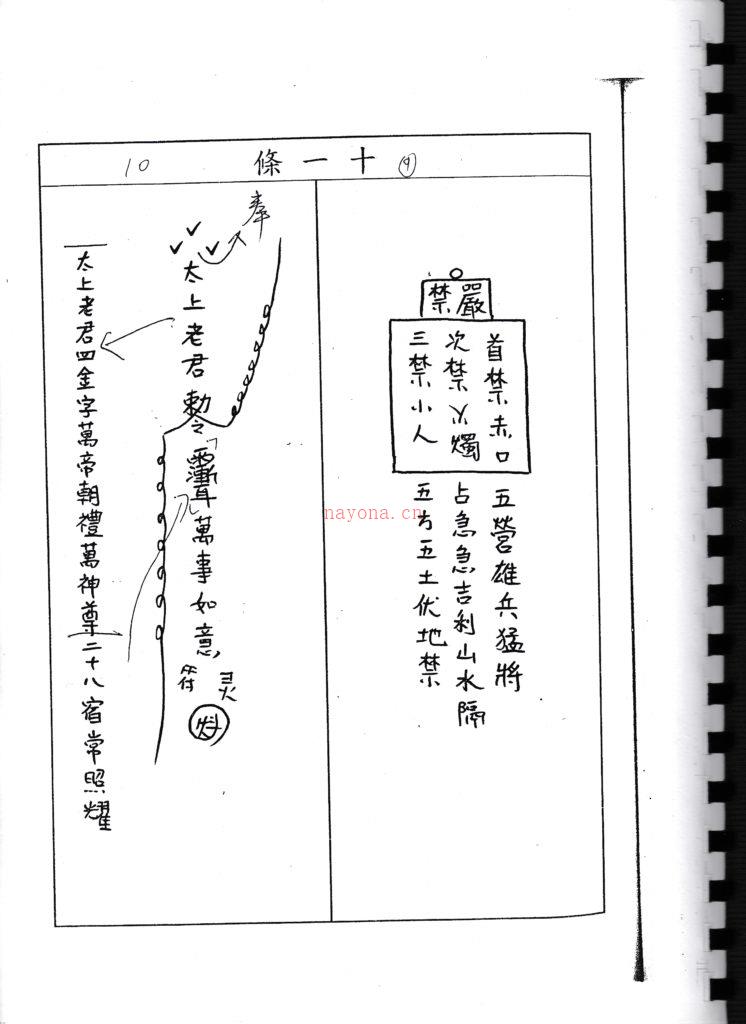 ⑨ 條一十 10
嚴禁
首禁赤口
次禁火燭
三禁小人
五營雄兵猛將
占急急吉利山水隔
五方五土伏地禁
奉
太上老君勅令
萬事如意
灵符
太上老君四金字萬帝朝禮萬神尊二十八宿常照耀
nayona.cn